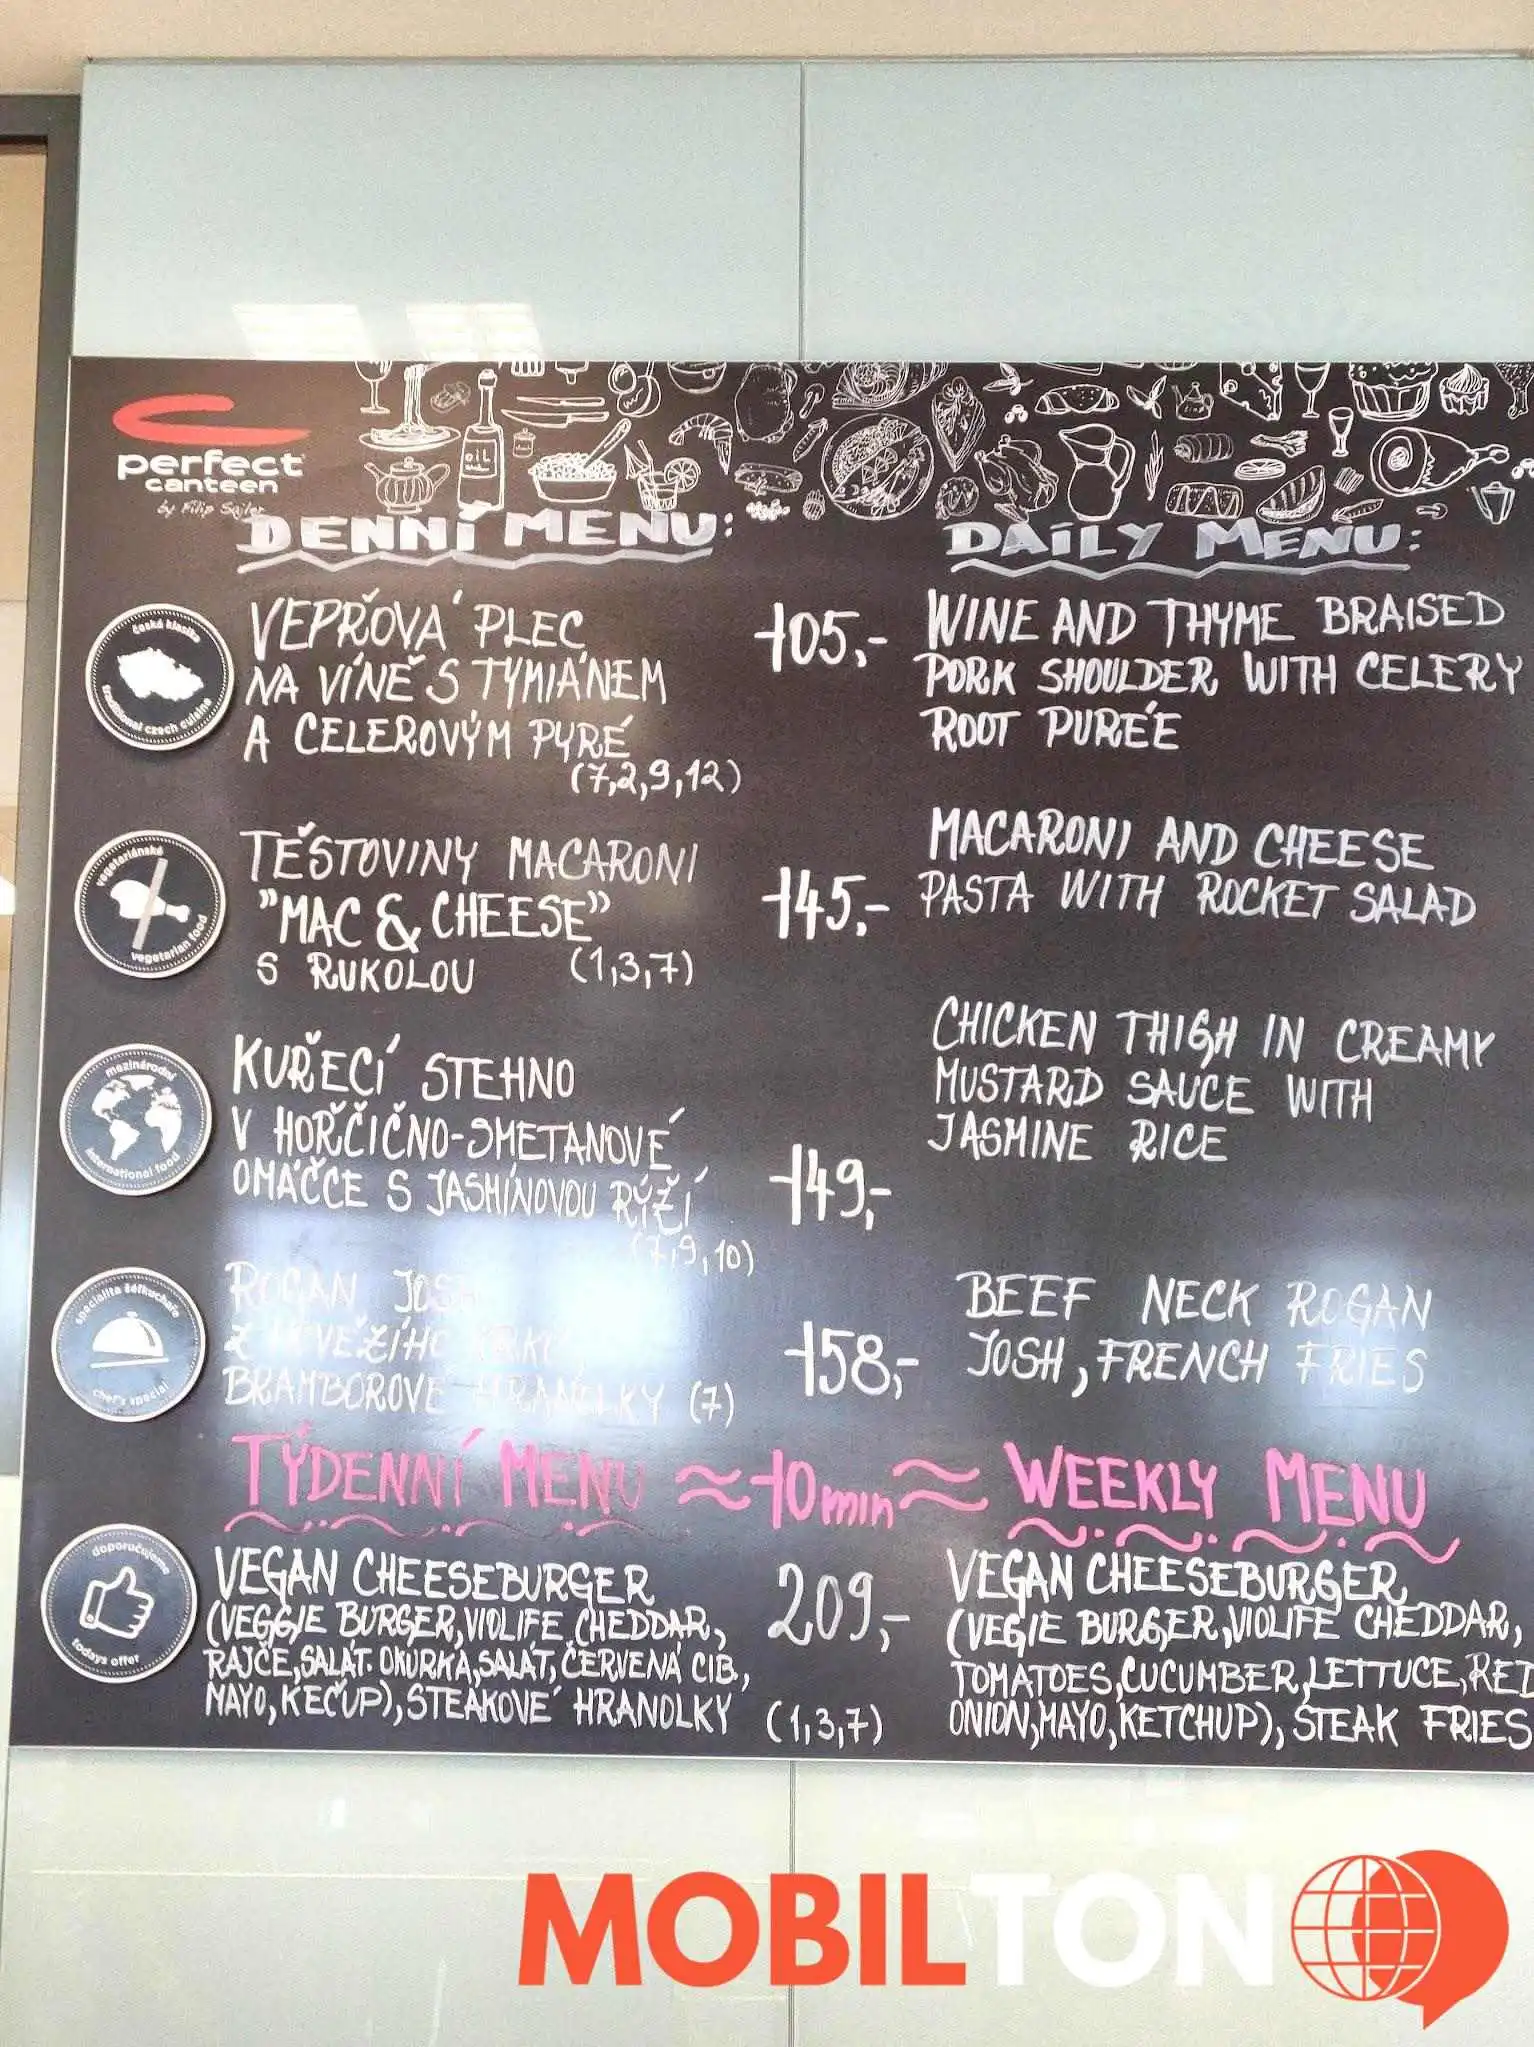 perfect
canteen
by Filip Sajler
DENNÍ MENU:
DAILY MENU:
česká klasika
traditional czech cuisine
VEPŘOVÁ PLEC
NA VÍNĚ S TYMIÁNEM
A CELEROVÝM PYRÉ
(7,2,9,12)
105,-
WINE AND THYME BRAISED
PORK SHOULDER WITH CELERY
ROOT PURÉE
vegetariánské
vegetarian food
TĚSTOVINY MACARONI
"MAC & CHEESE"
S RUKOLOU (1,3,7)
145,-
MACARONI AND CHEESE
PASTA WITH ROCKET SALAD
mezinárodní
international food
KUŘECÍ STEHNO
V HOŘČIČNO-SMETANOVÉ
OMÁČCE S JASMÍNOVOU RÝŽÍ
(7,9,10)
149,-
CHICKEN THIGH IN CREAMY
MUSTARD SAUCE WITH
JASMINE RICE
specialita šéfkuchaře
chef's special
ROGAN JOSH
Z
BRAMBOROVÉ HRANOLKY (7)
158,-
BEEF NECK ROGAN
JOSH, FRENCH FRIES
TÝDENNÍ MENU ≈ 10min ≈ WEEKLY MENU
doporučujeme
todays offer
VEGAN CHEESEBURGER
(VEGGIE BURGER, VIOLIFE CHEDDAR,
RAJČE, SALÁT. OKURKA, SALÁT, ČERVENÁ CIB,
MAYO, KEČUP), STEAKOVÉ HRANOLKY
209,-
(1,3,7)
VEGAN CHEESEBURGER
(VEGIE BURGER, VIOLIFE CHEDDAR,
TOMATOES, CUCUMBER, LETTUCE, RED
ONION, MAYO, KETCHUP), STEAK FRIES
OIL
MOBILTON